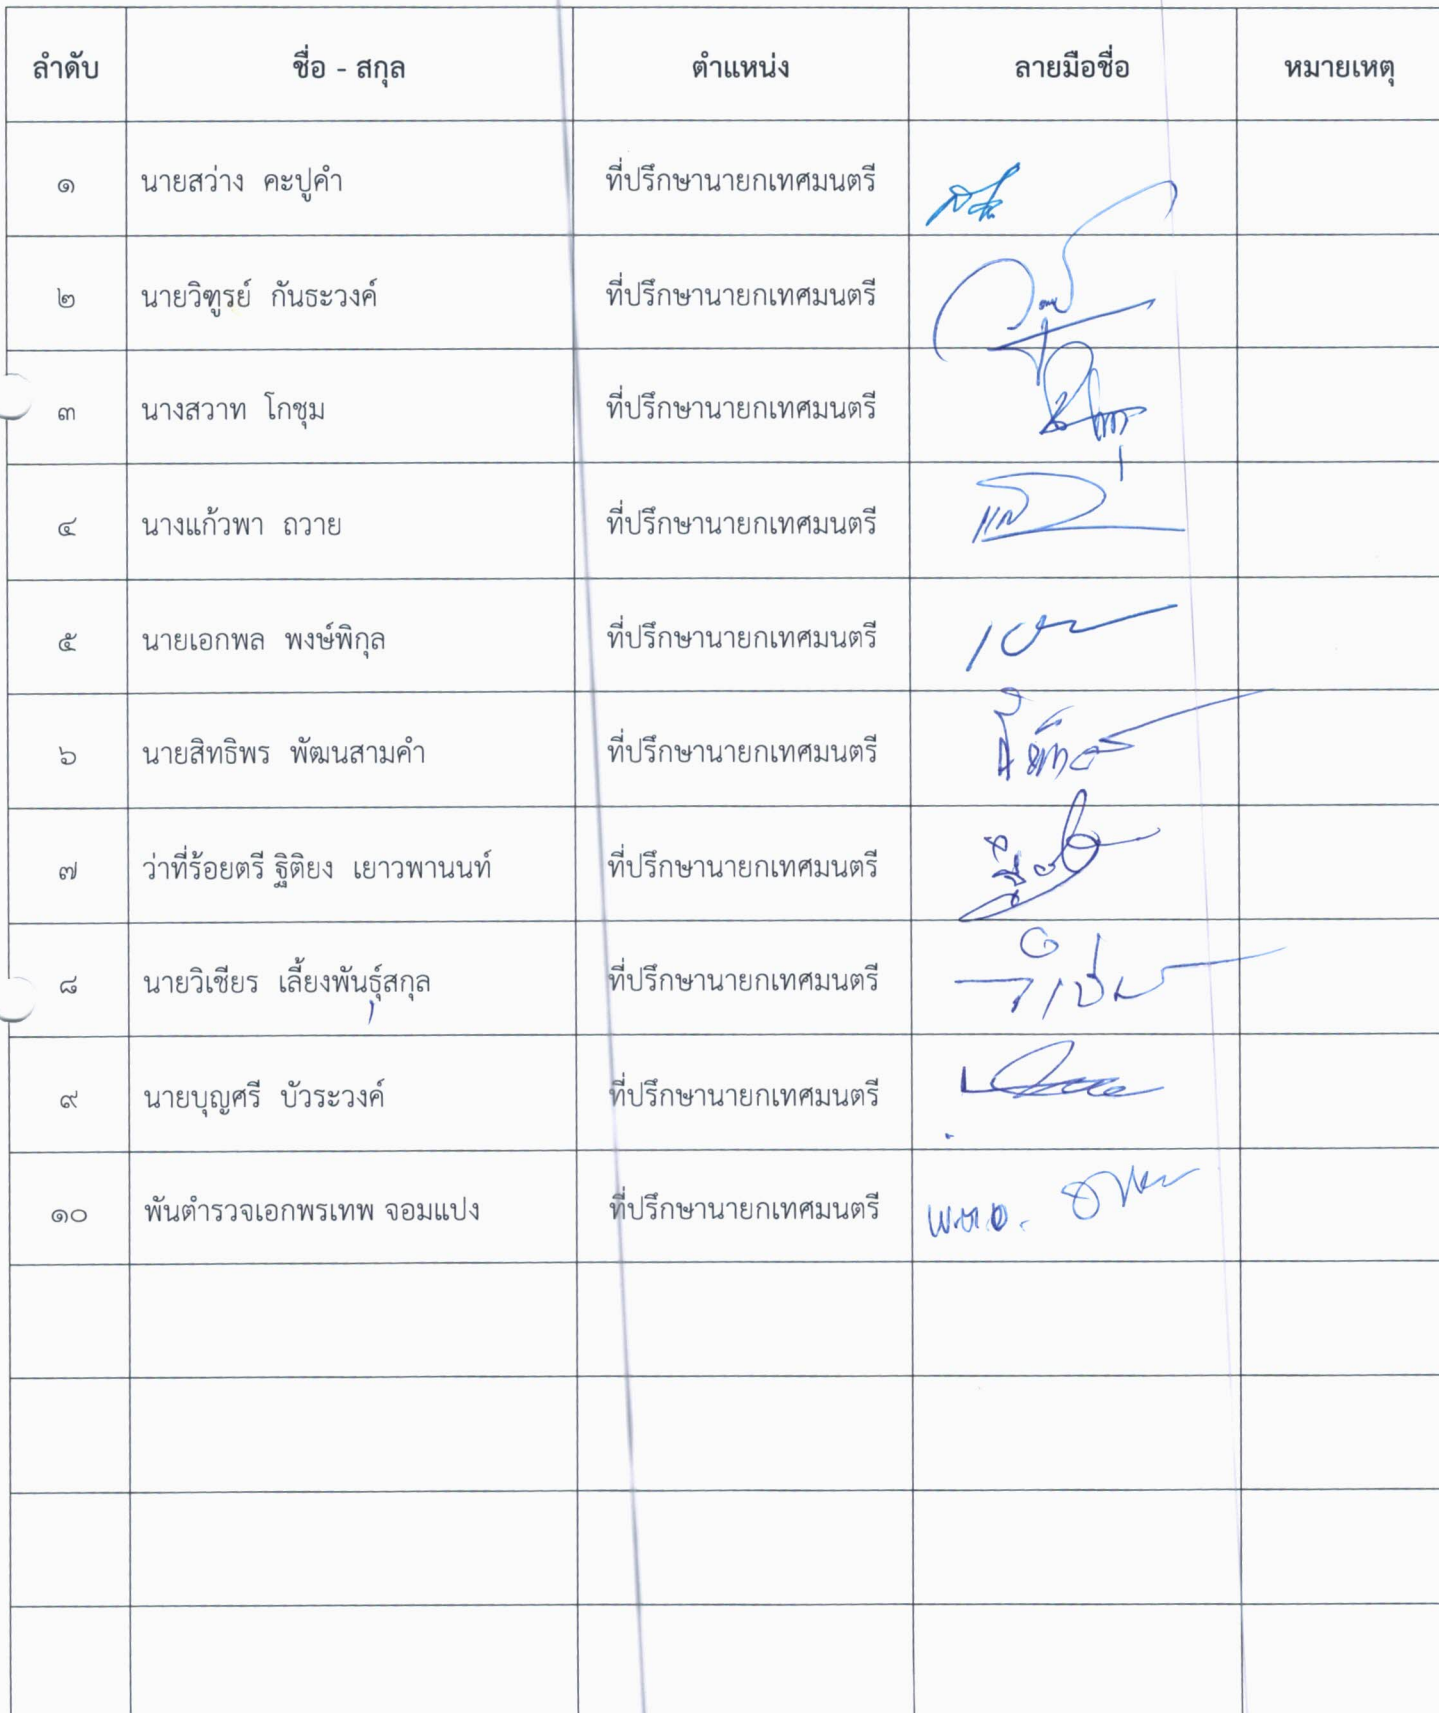 ลำดับ ชื่อ - สกุล ตำแหน่ง ลายมือชื่อ หมายเหตุ
๑ นายสว่าง คะปูคำ ที่ปรึกษานายกเทศมนตรี
๒ นายวิฑูรย์ กันธะวงค์ ที่ปรึกษานายกเทศมนตรี
๓ นางสวาท โกชุม ที่ปรึกษานายกเทศมนตรี
๔ นางแก้วพา ถวาย ที่ปรึกษานายกเทศมนตรี
๕ นายเอกพล พงษ์พิกุล ที่ปรึกษานายกเทศมนตรี
๖ นายสิทธิพร พัฒนสามคำ ที่ปรึกษานายกเทศมนตรี
๗ ว่าที่ร้อยตรี ฐิติยง เยาวพานนท์ ที่ปรึกษานายกเทศมนตรี
๘ นายวิเชียร เลี้ยงพันธุ์สกุล ที่ปรึกษานายกเทศมนตรี
๙ นายบุญศรี บัวระวงค์ ที่ปรึกษานายกเทศมนตรี
๑๐ พันตำรวจเอกพรเทพ จอมแปง ที่ปรึกษานายกเทศมนตรี พ.ต.อ.